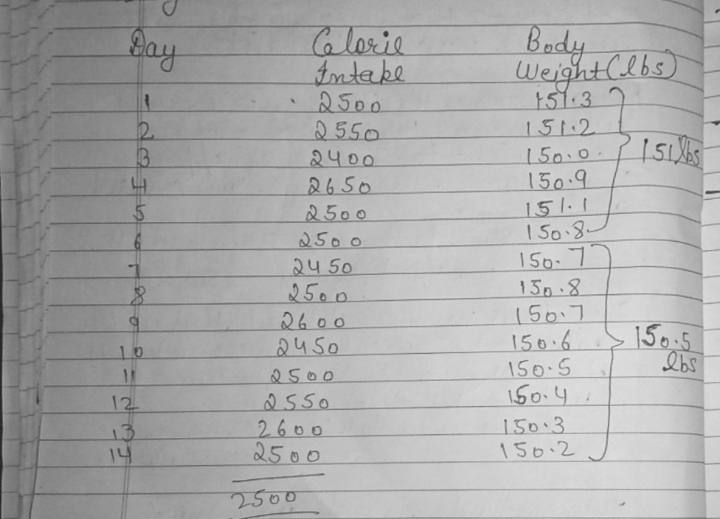 Day Calorie Intake Body Weight (lbs)
1 2500 151.3
2 2550 151.2
3 2400 150.0 151 lbs
4 2650 150.9
5 2500 151.1
6 2500 150.8
7 2450 150.7
8 2500 150.8
9 2600 150.7
10 2450 150.6 150.5 lbs
11 2500 150.5
12 2550 150.4
13 2600 150.3
14 2500 150.2
2500